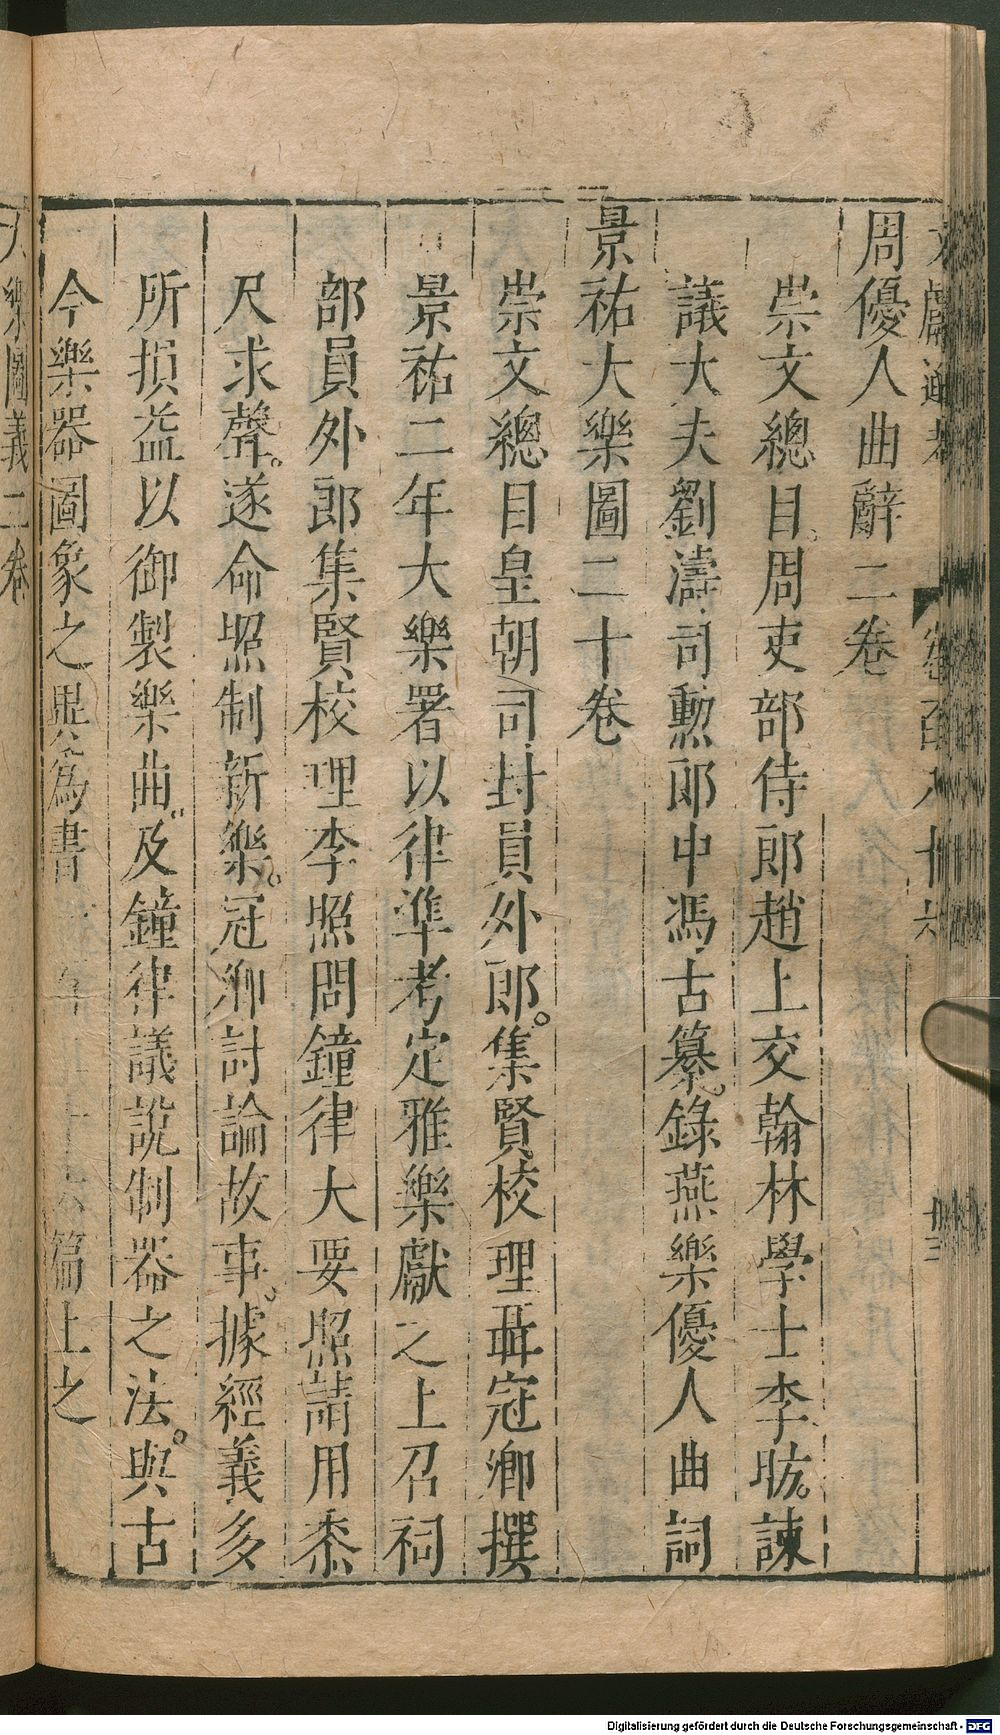 周優人曲辭二卷
崇文總目周吏部侍郎趙上交翰林學士李昉諫
議大夫劉濤司勲郎中馮古纂錄燕樂優人曲詞
景祐大樂圖二十卷
崇文總目皇朝司封員外郎集賢校理聶冠卿撰
景祐二年大樂署以律準考定雅樂獻之上召祠
部員外郎集賢校理李照問鐘律大要照請用黍
尺求聲遂命照制新樂冠卿討論故事據經義多
所損益以御製樂曲及鐘律議說制器之法與古
今樂器圖象之異為書 篇上之
大樂圖義二卷
Digitalisierung gefördert durch die Deutsche Forschungsgemeinschaft - DFG